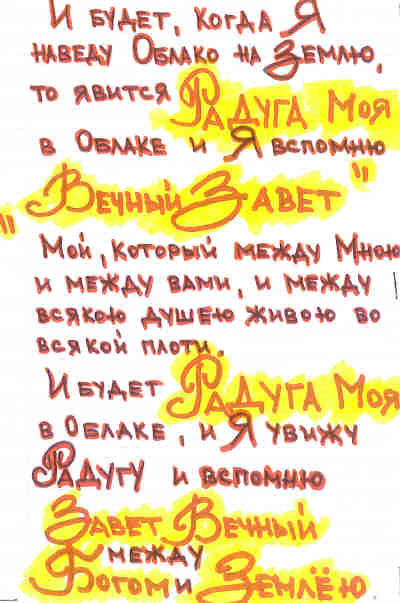 И будет, когда Я
наведу Облако на Землю,
то явится Радуга Моя
в Облаке и Я вспомню
"Вечный Завет"
Мой, который между Мною
и между вами, и между
всякою душею живою во
всякой плоти.
И будет Радуга Моя
в Облаке, и Я увижу
Радугу и вспомню
Завет Вечный
между
Богом и Землёю